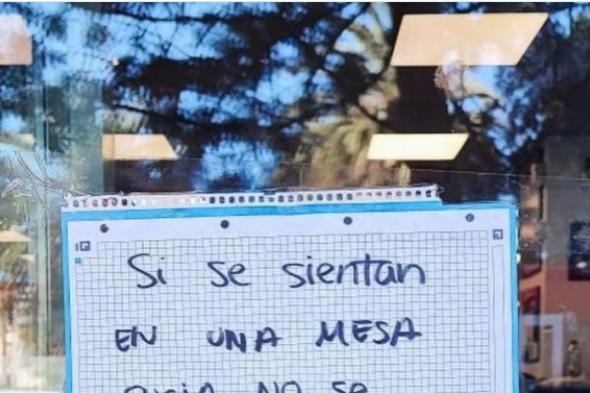 Si se sientan
EN UNA MESA
sucia no se